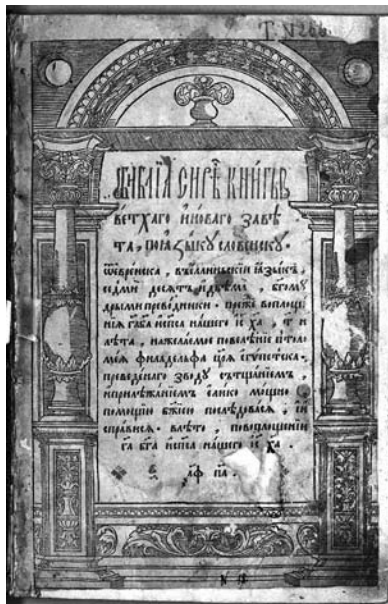 Т. N 266.
БИБЛІА СИРѢЧ КНИГЫ
ВЕТХАГО И НОВАГО ЗАВѢ
ТА, ПО ЯЗЫКУ СЛОВЕНСКУ.
ѿ еврейска, въ еллиньскїи ꙗзыкъ,
седмїю десѧтъ и двѣма, бг҃омꙋ
дрыми преводники. преже воплоще
нїѧ га҃ ба҃ и сп҃са нашего іс҃ ха҃, т҃ и
лѣта, на желаемое повелѣнїе птоло
меа филаделфа цр҃ѧ египетска.
преведенаго зводꙋ съ тщанїемъ,
и прилѣжанїемъ елико мощно
помощїю бж҃їею послѣдовасѧ, и
исправисѧ. в лѣто, по воплощенїи
га҃ бг҃а и сп҃са нашего іс҃ ха҃.
аф па.
N 18